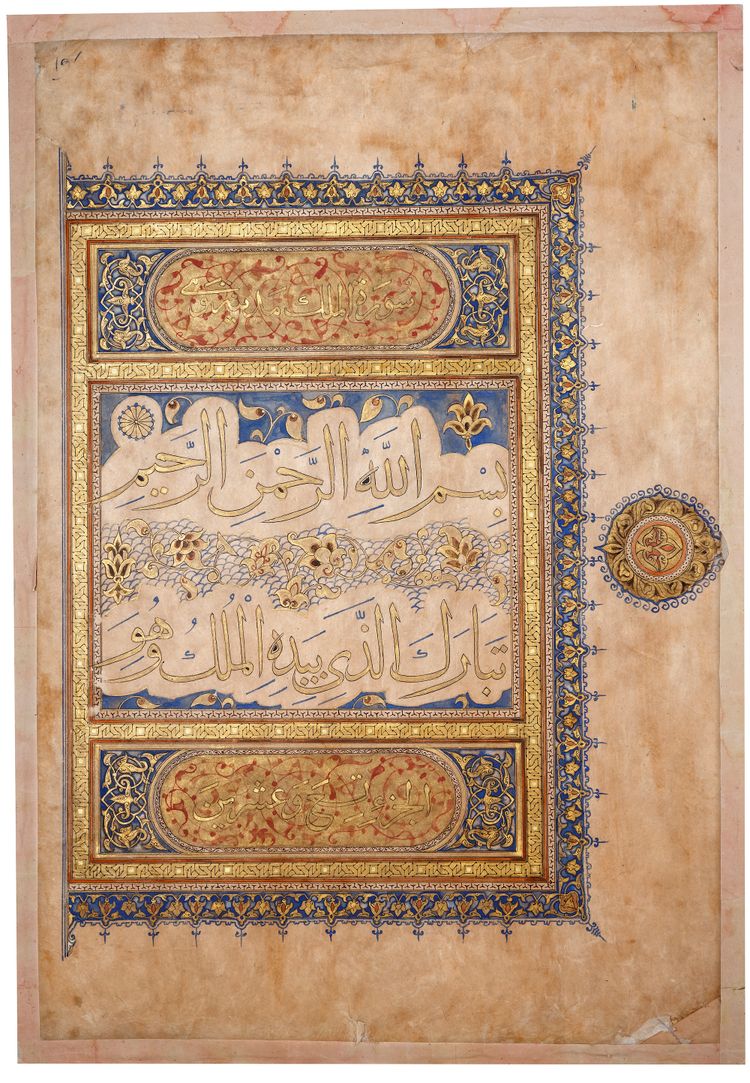 سورة الملك
بِسْمِ اللَّهِ الرَّحْمَنِ الرَّحِيمِ
تَبَارَكَ الَّذِي بِيَدِهِ الْمُلْكُ وَهُوَ
الجزء تسع وعشرين